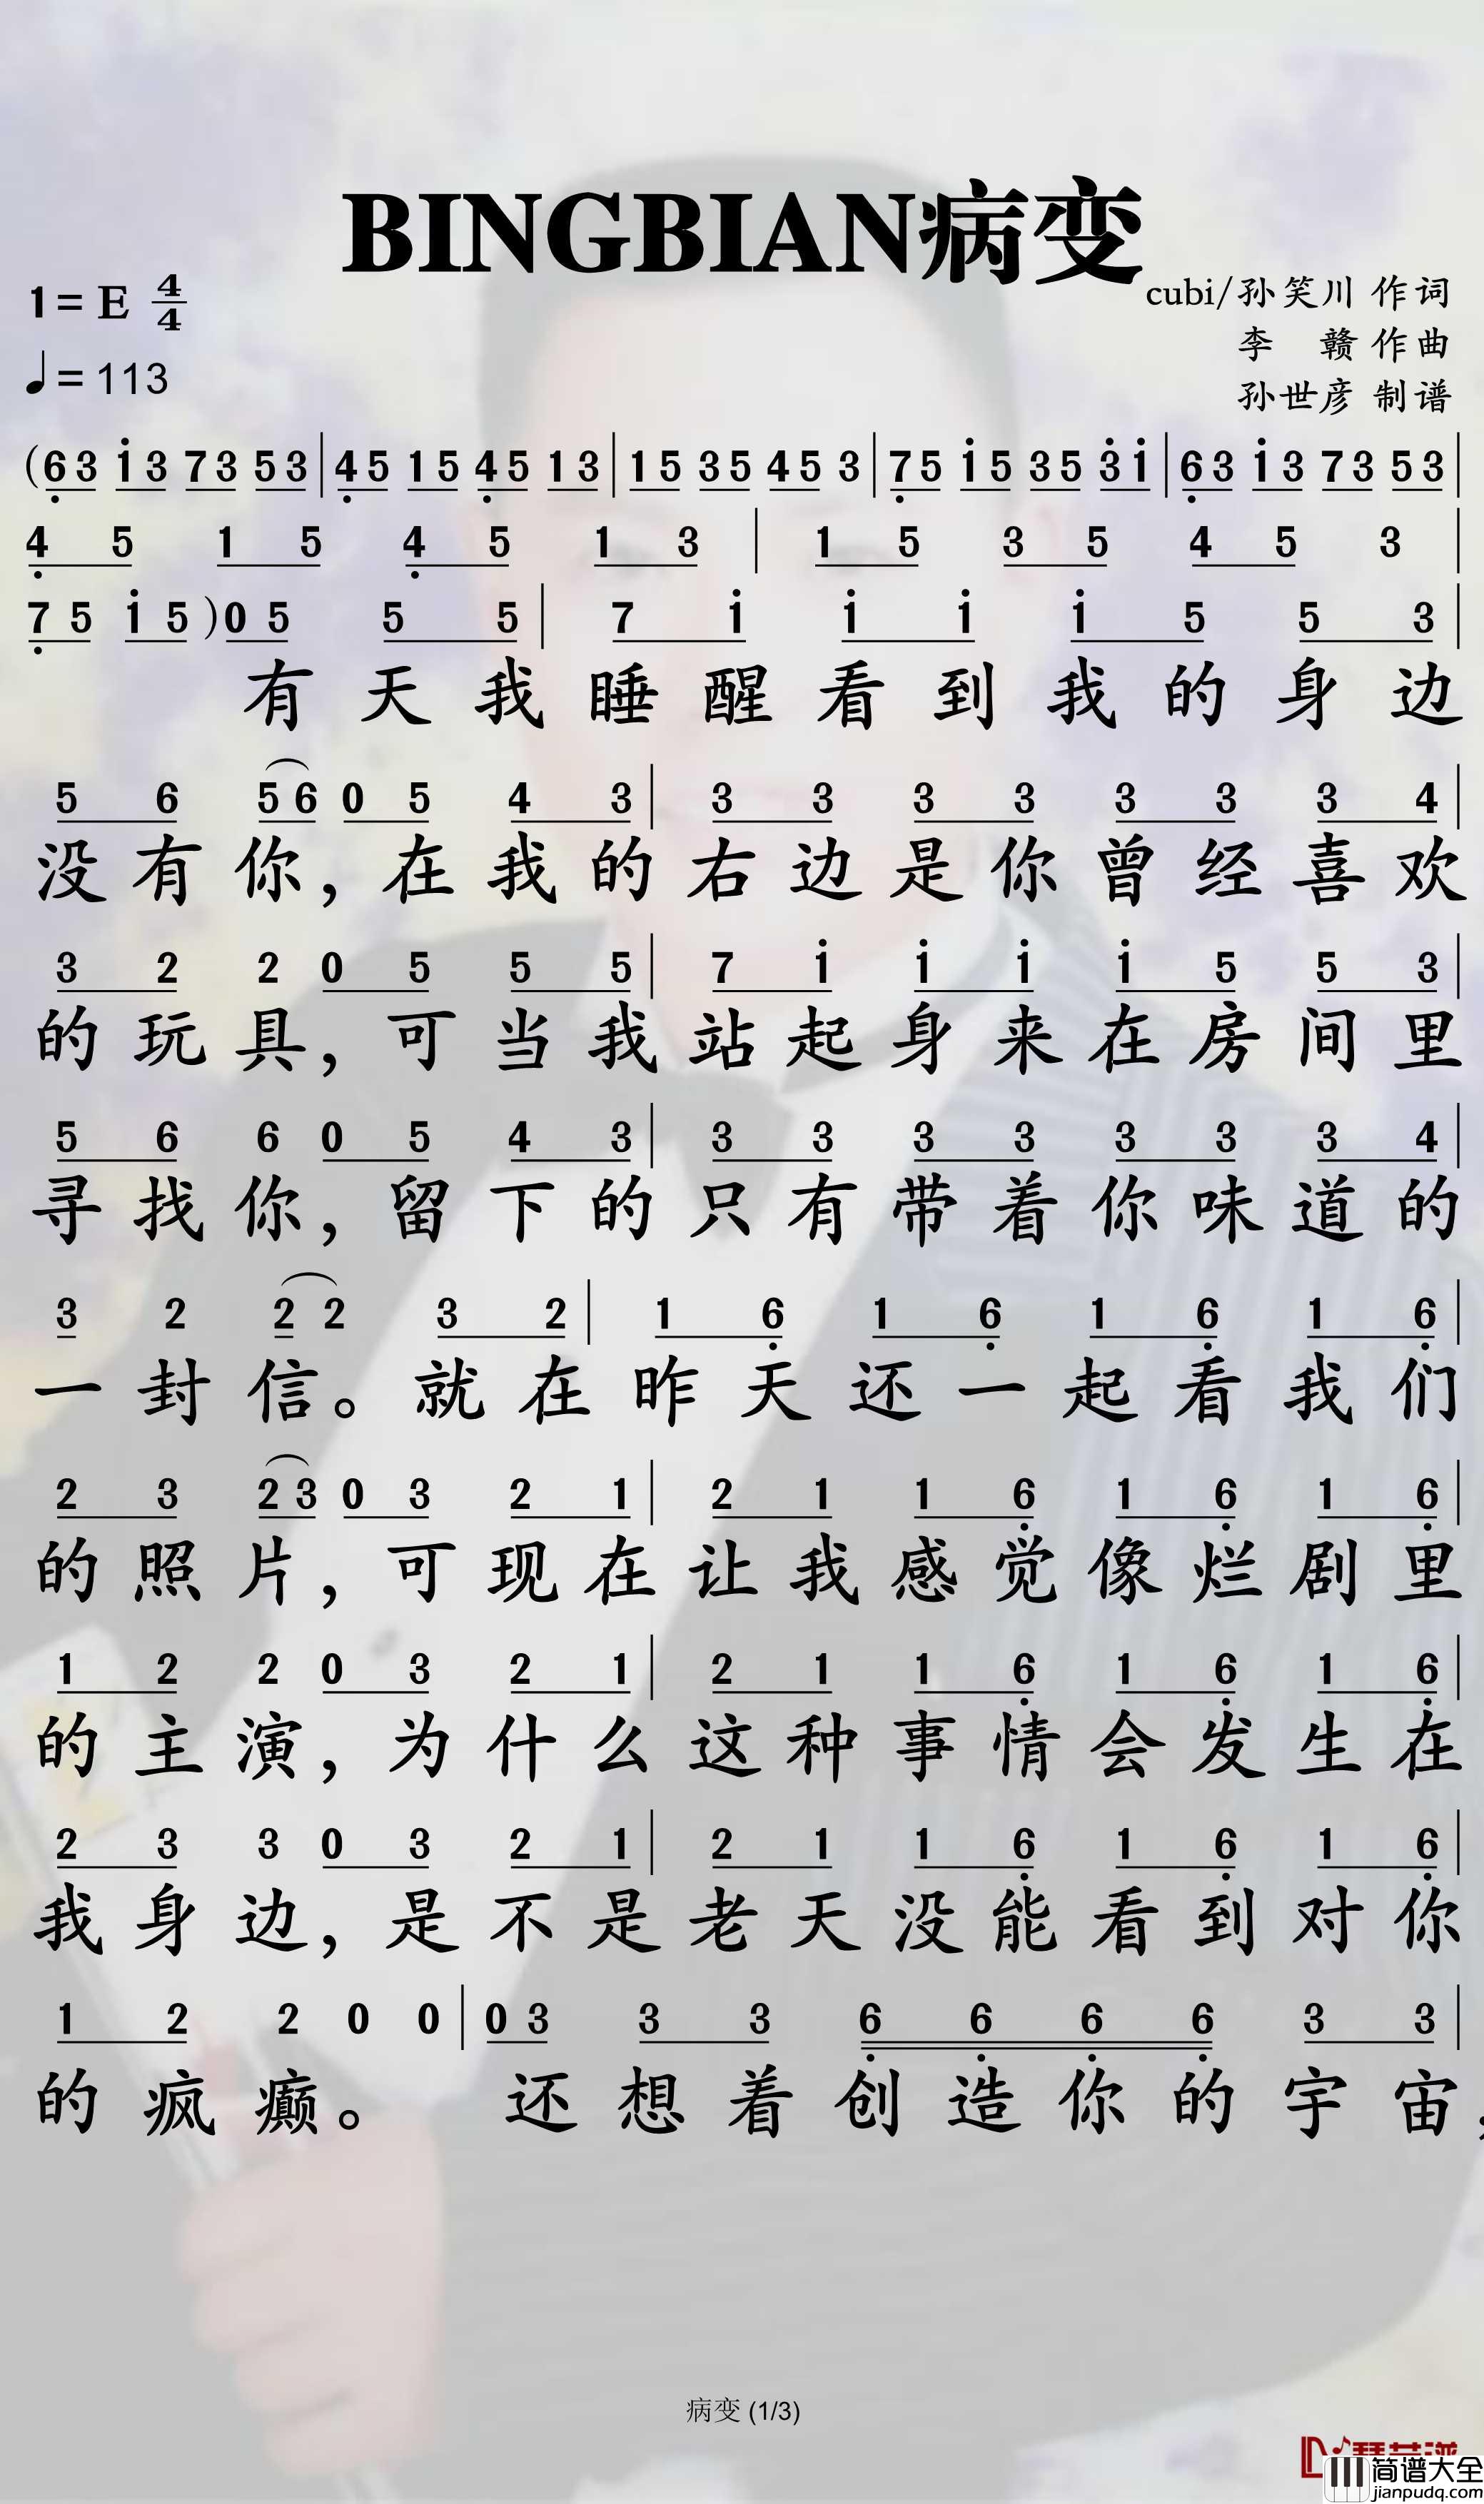 BINGBIAN病变
1= E 4/4
cubi/孙笑川 作词
李 赣 作曲
♩= 113
孙世彦 制谱
(6̣3 1̇3 73 53 | 4̣5 15 4̣5 13 | 15 35 45 3 | 7̣5 1̇5 35 3̇1̇ | 6̣3 1̇3 73 53 |
4̣ 5 1 5 4̣ 5 1 3 | 1 5 3 5 4 5 3 |
7̣ 5 1̇ 5 )0 5 5 5 | 7 1̇ 1̇ 1̇ 1̇ 5 5 3 |
有天我睡醒看到我的身边
5 6 5 6 0 5 4 3 | 3 3 3 3 3 3 3 4 |
没有你,在我的右边是你曾经喜欢
3 2 2 0 5 5 5 | 7 1̇ 1̇ 1̇ 1̇ 5 5 3 |
的玩具,可当我站起身来在房间里
5 6 6 0 5 4 3 | 3 3 3 3 3 3 3 4 |
寻找你,留下的只有带着你味道的
3 2 2 2 3 2 | 1 6̣ 1 6̣ 1 6̣ 1 6̣ |
一封信。就在昨天还一起看我们
2 3 2 3 0 3 2 1 | 2 1 1 6̣ 1 6̣ 1 6̣ |
的照片,可现在让我感觉像烂剧里
1 2 2 0 3 2 1 | 2 1 1 6̣ 1 6̣ 1 6̣ |
的主演,为什么这种事情会发生在
2 3 3 0 3 2 1 | 2 1 1 6̣ 1 6̣ 1 6̣ |
我身边,是不是老天没能看到对你
1 2 2 0 0 | 0 3 3 3 6̣ 6̣ 6̣ 6̣ 3 3 |
的疯癫。 还想着创造你的宇宙,
病变 (1/3)
简谱大全
jianpudq.com